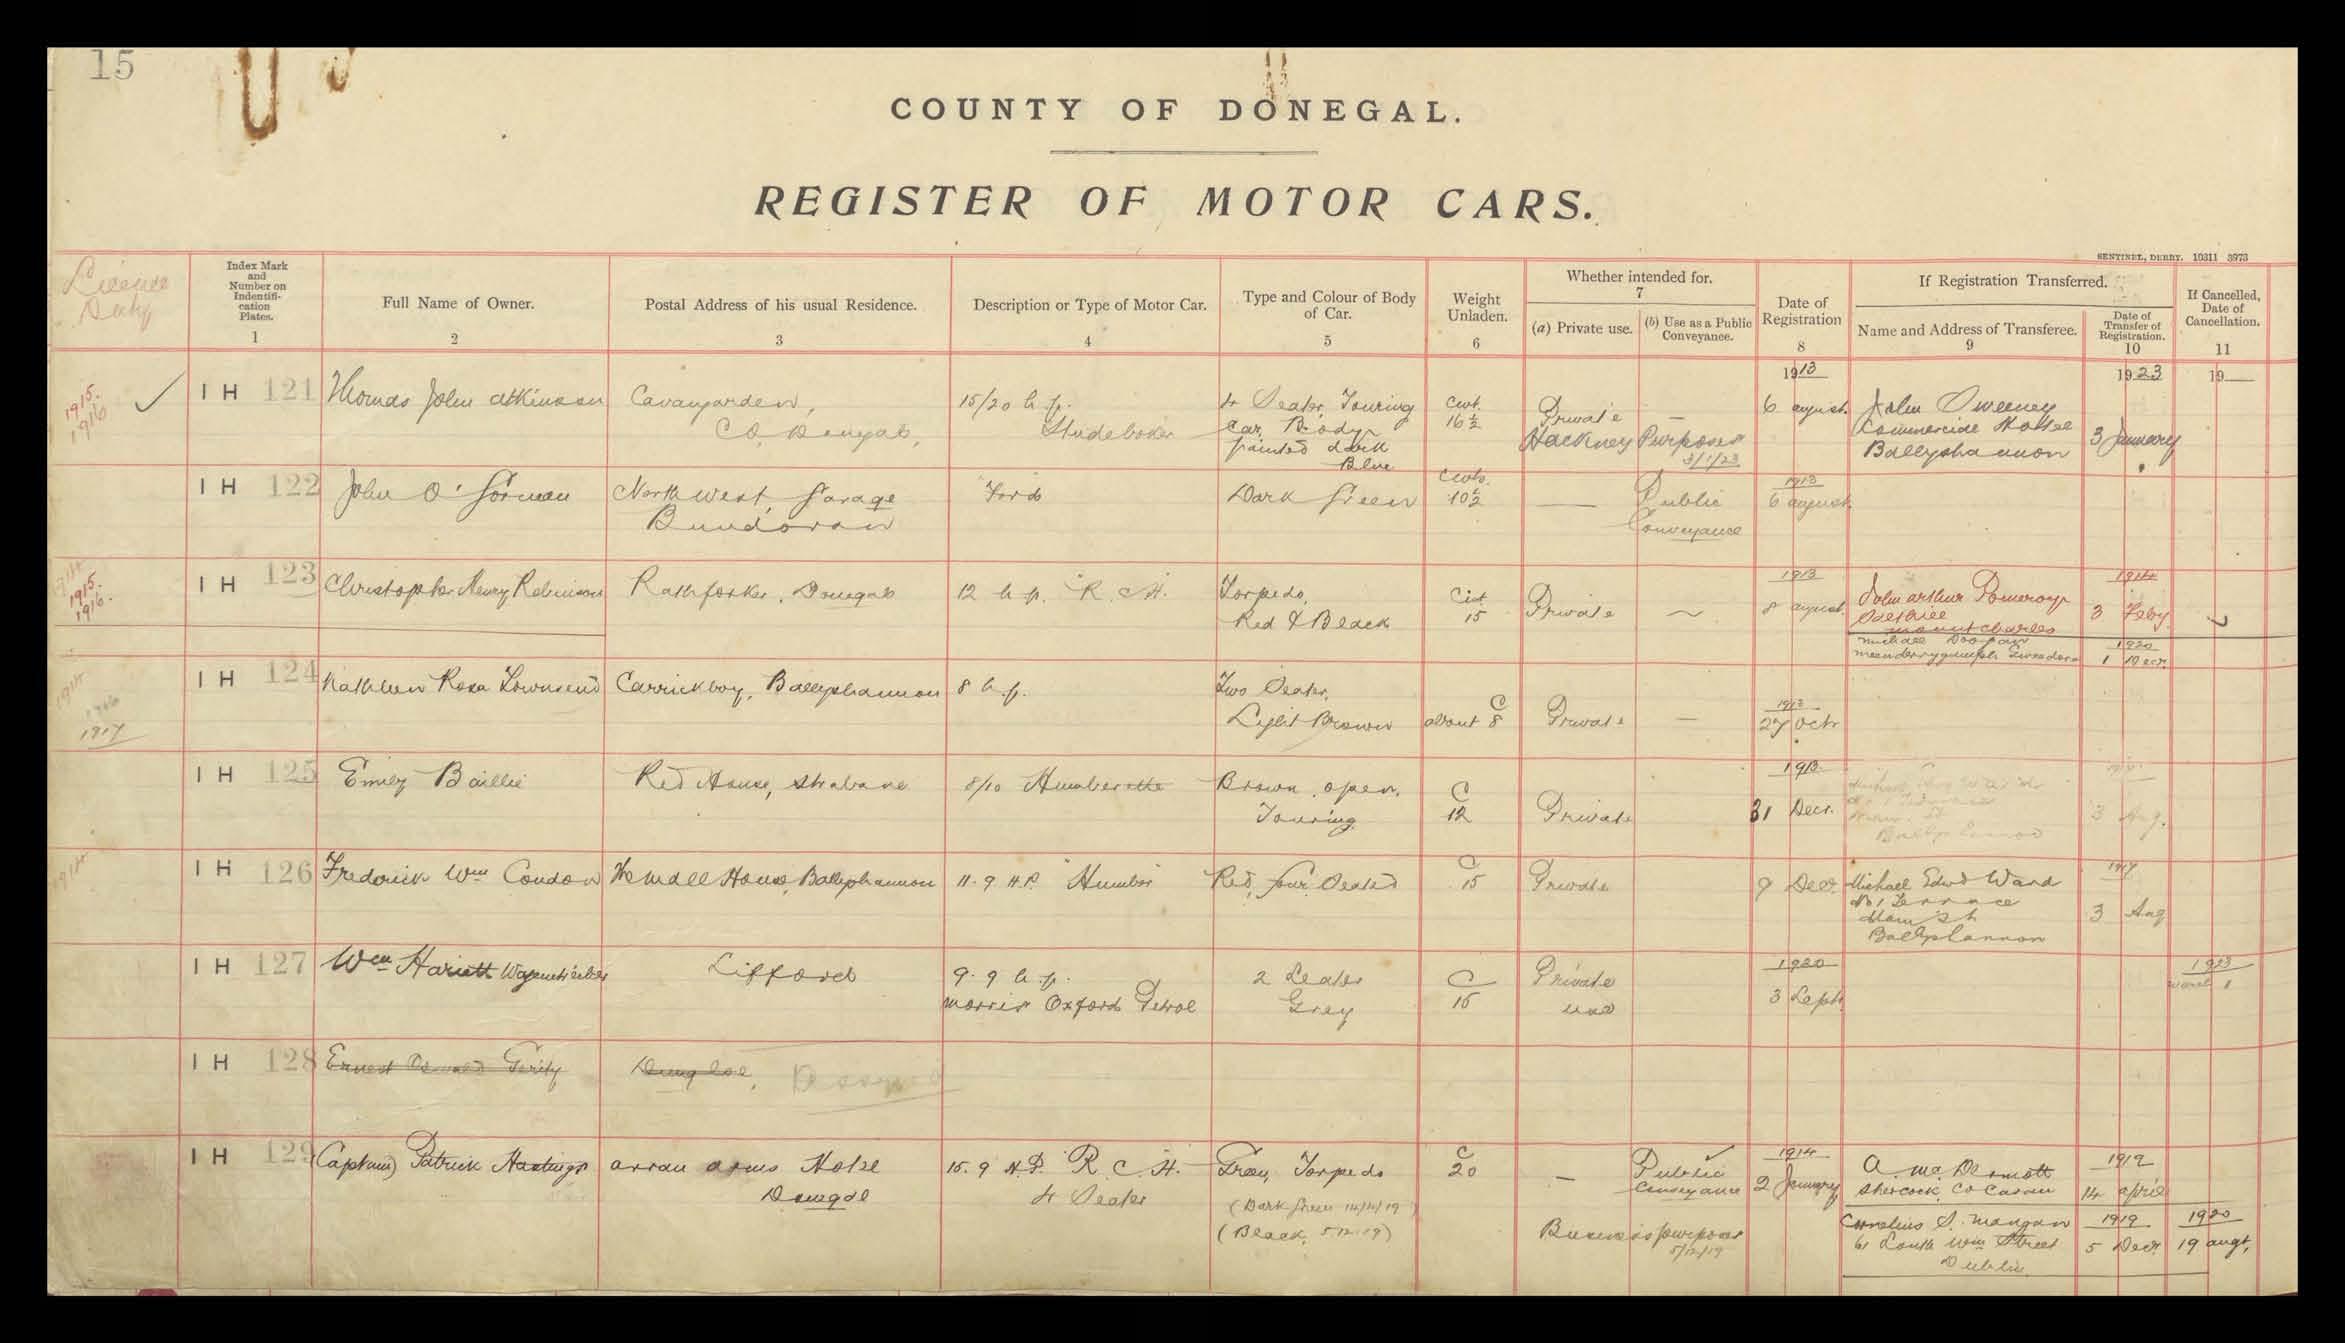 15
COUNTY OF DONEGAL.
REGISTER OF MOTOR CARS.
SENTINEL, DERRY. 10311 3973
Licence
Duty
Index Mark
and
Number on
Indentifi-
cation
Plates.
1
Full Name of Owner.
2
Postal Address of his usual Residence.
3
Description or Type of Motor Car.
4
Type and Colour of Body
of Car.
5
Weight
Unladen.
6
Whether intended for.
7
(a) Private use.
(b) Use as a Public
Conveyance.
Date of
Registration
8
If Registration Transferred.
Name and Address of Transferee.
9
Date of
Transfer of
Registration.
10
If Cancelled,
Date of
Cancellation.
11
1915.
1916
IH 121
Thomas John Atkinson
Cavangarden,
Co. Donegal,
15/20 h.p.
Studebaker
4 Seater, Touring
Car, Body
painted dark
Blue
Cwt.
16½
Private
—
Hackney Purposes
3/1/23
1913
6 August.
John Sweeney
Commercial Hotel
Ballyshannon
1923
3 January
19
IH 122
John O'Gorman
North West Garage
Bundoran
Ford
Dark Green
Cwts.
10½
—
Public
Conveyance
1913
6 August.
1914
1915.
1916.
IH 123
Christopher Henry Robinson
Donegal
12 h.p. "R.C.H.
Torpedo,
Red & Black
Cwt
15
Private
1913
8 August.
John Arthur Pomeroy
Mountcharles
1914
3 Feby.
Michael
Gweedore
1920
1 Decr.
1914
1916
1917
IH 124
Kathleen Rosa Townsend
Carrickboy, Ballyshannon
8 h.p.
Two Seater,
Light Brown
C
about 8
Private
—
1913
27 Octr
IH 125
Emily Baillie
Red House, Strabane
8/10 Humberette
Brown, open,
Touring
C
12
Private
1913
31 Decr.
Ballyshannon
3 Aug.
1914
IH 126
Frederick Wm Condon
House, Ballyshannon
11.9 H.P. Humber
Red, four Seated
C
15
Private
9 Decr.
Michael Edwd Ward
No 1 Terrace
Main St
Ballyshannon
1917
3 Aug
IH 127
Wm Hariett Wagentrieber
Lifford
9.9 h.p.
Morris Oxford Petrol
2 Seater
Grey
C
15
Private
use
1920
3 Septr.
1923
1
IH 128
Ernest Oswald Verity
Dungloe,
IH 129
(Captain) Patrick Hastings
Arran Arms Hotel
Donegal
15.9 H.P. R.C.H.
4 Seater
Green, Torpedo
(Dark Green 14/4/19)
(Black, 5.12.19)
C
20
—
Public
Conveyance
Business purposes
5/12/19
1914
2 January
A. McDermott
Shercock, Co Cavan
1919
14 April
Cornelius S. Mangan
61 South Wm Street
Dublin.
1919
5 Decr.
1920
19 Augt,